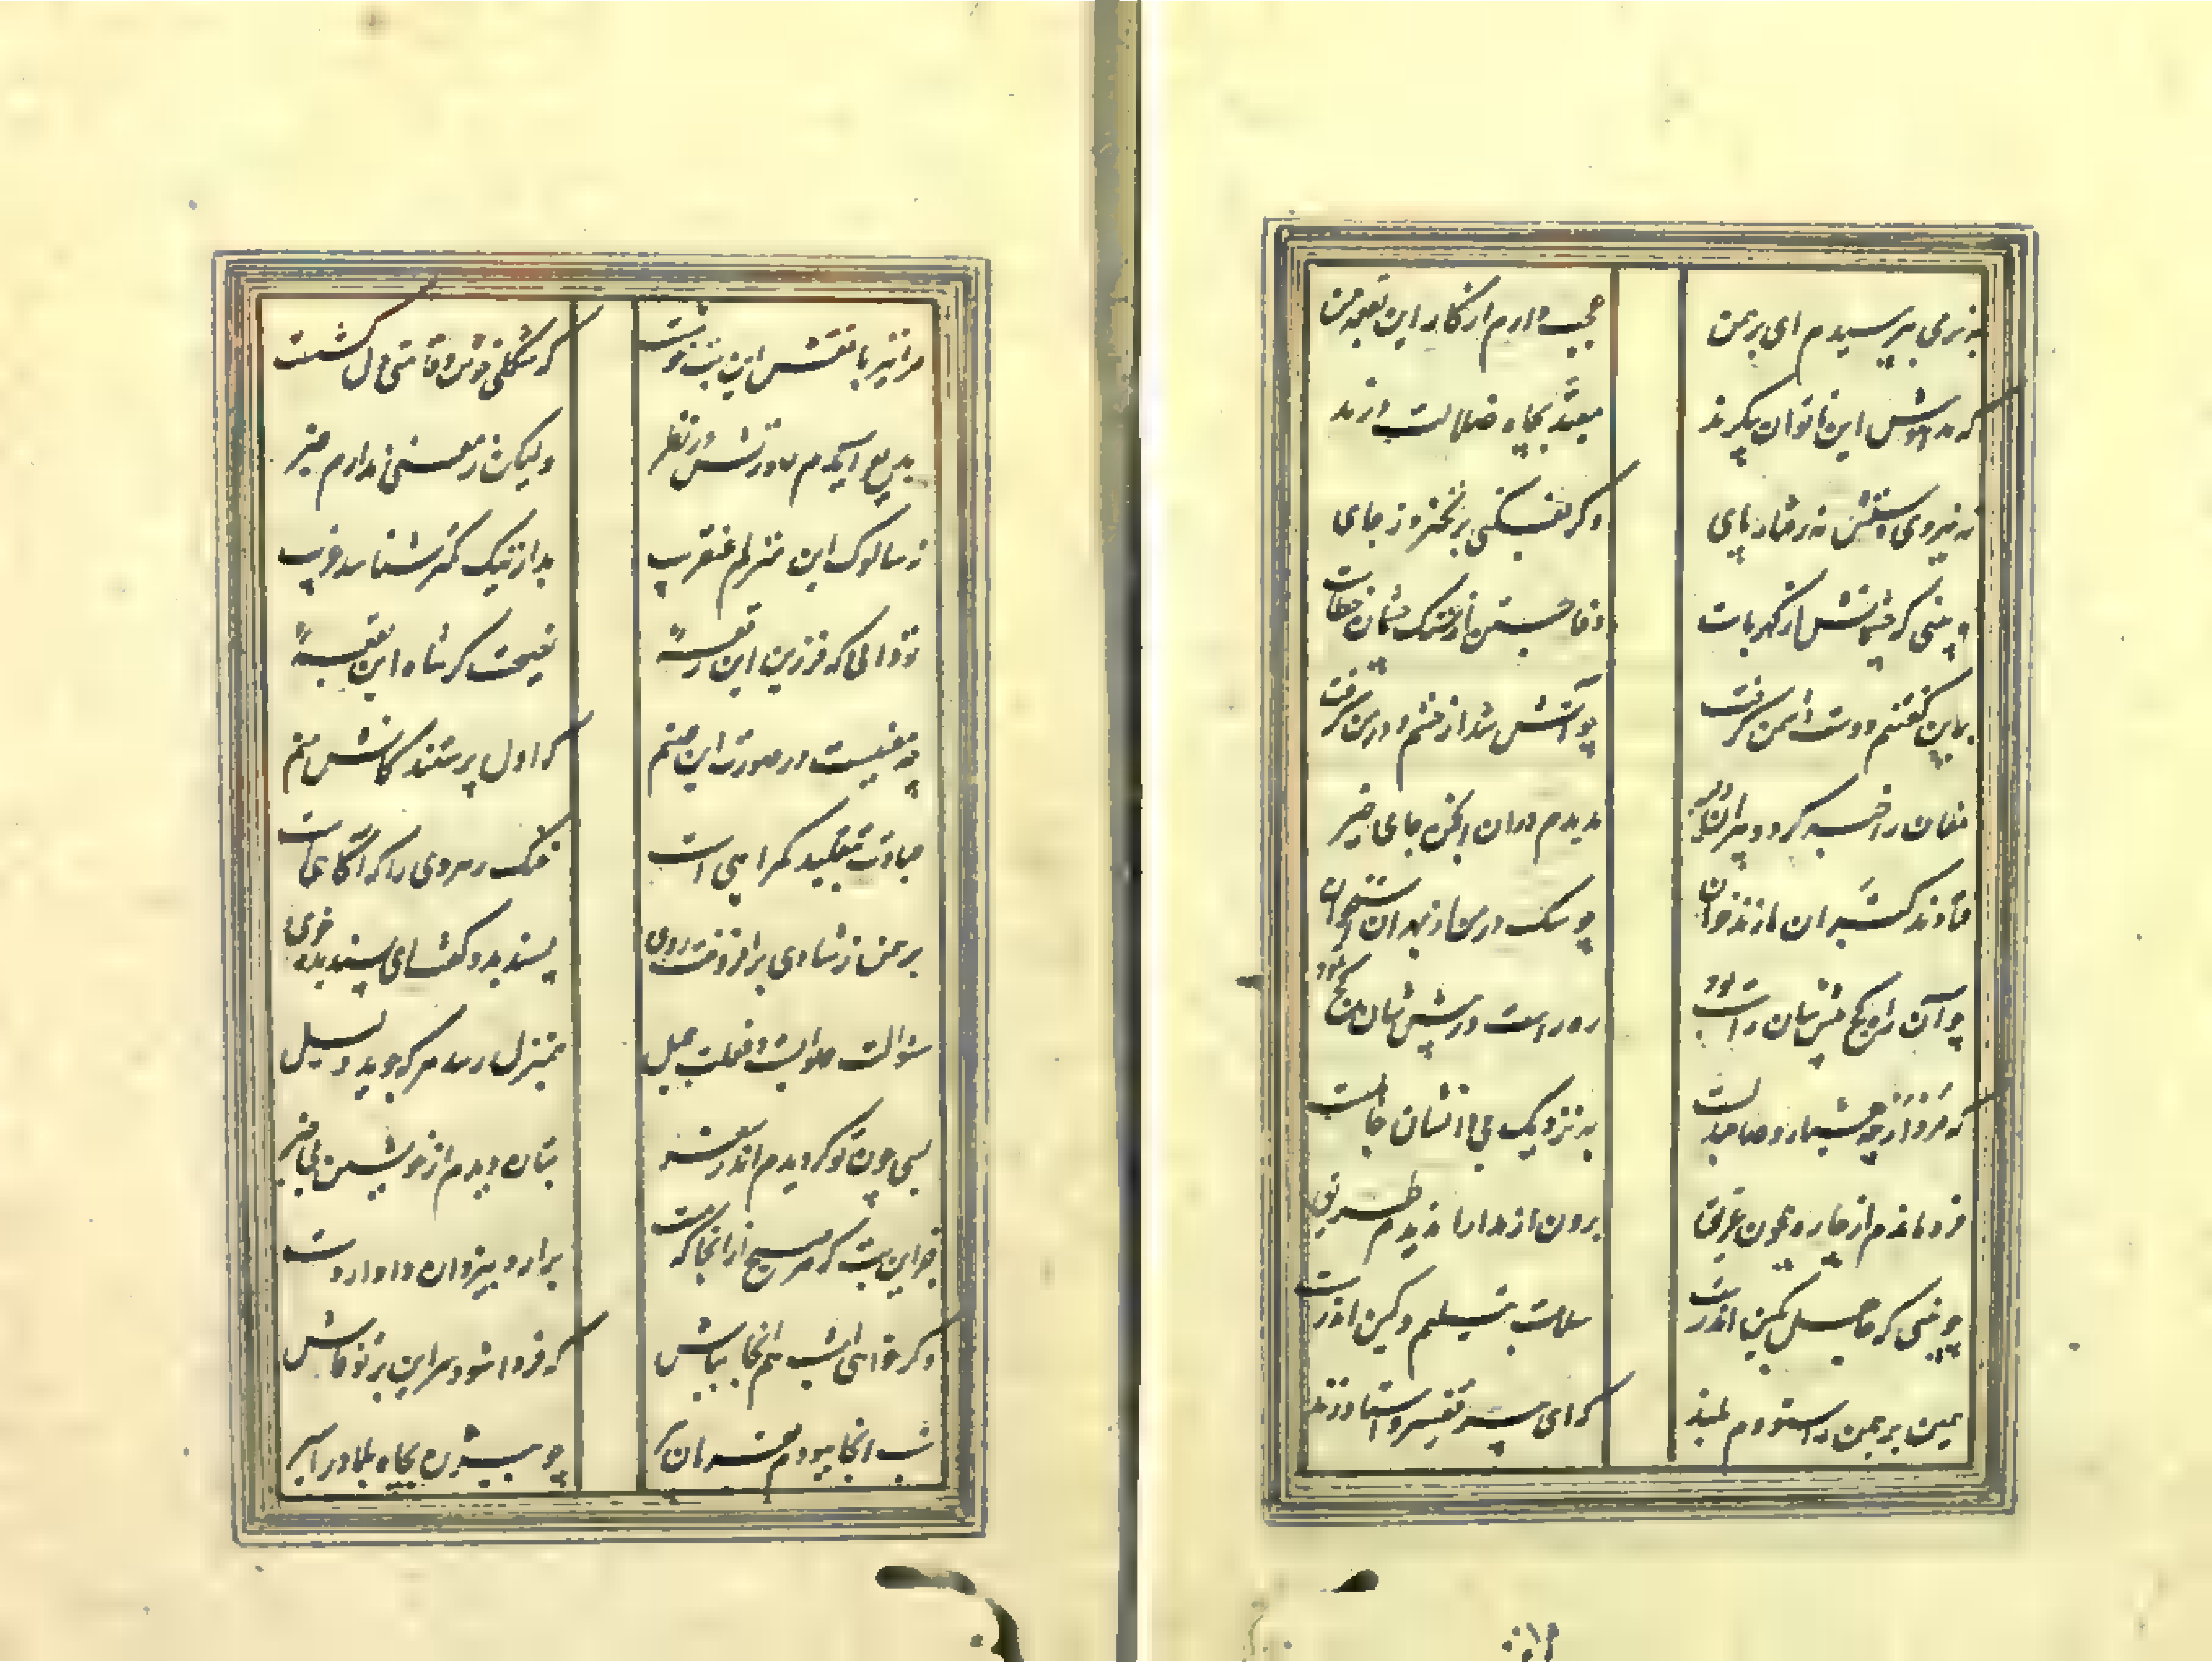 به نرمی بپرسیدم ای برهمن عجب دارم از کار این بقعه من
که مدهوش این ناتوان پیکرند مقید بچاه ضلالت درند
نه نیروی دستش نه رفتار پای وگر بفکنی برنخیزد ز جای
نه بینی که چشمانش از کهرباست وفا جستن از سنگ چشمان خطاست
براین گفتنم دوست دشمن گرفت چو آتش شد از خشم و در من گرفت
مغان را خبر کرد و پیران دیر ندیدم دران انجمن جای خیر
فتادند گبران پازند خوان چو سگ در من از بهر آن استخوان
چو آن راه کج پیش شان راست بود ره راست در پیش شان کج نمود
که مرد ارچه هشیار و صاحبدلست به نزدیک بی دانشان جاهلست
فرو ماندم از چاره همچون غریق برون از مدارا ندیدم طریق
چو بینی که جاهل بکین اندرست سلامت بتسلیم و لین اندرست
مهین برهمن را ستودم بلند که ای پیر تفسیر و استا و زند
مرا نیز با نقش این بت خوشست که شکلی خوش و قامتی دلکشست
بدیع آیدم صورتش در نظر ولیکن ز معنی ندارم خبر
که سالوک این منزلم عنقریب بد از نیک کمتر شناسد غریب
تو دانی که فرزین این رقعهٔ نصیحت گر شاه این بقعهٔ
چه معنیست در صورت این صنم که اول پرستندگانش منم
عبادت بتقلید گمراهی است خنک رهروی را که آگاهی است
برهمن ز شادی برافروخت روی پسندید و گفت ای پسندیده خوی
سؤالت صوابست و فعلت جمیل بمنزل رسد هر که جوید دلیل
بسی چون تو گردیدم اندر سفر بتان دیدم از خویشتن بی خبر
جز این بت که هر صبح از اینجا که هست برآرد بیزدان دادار دست
وگر خواهی امشب هم اینجا بباش که فردا شود سر این بر تو فاش
شب آنجا ببودم بفرمان پیر چو بیژن بچاه بلا در اسیر